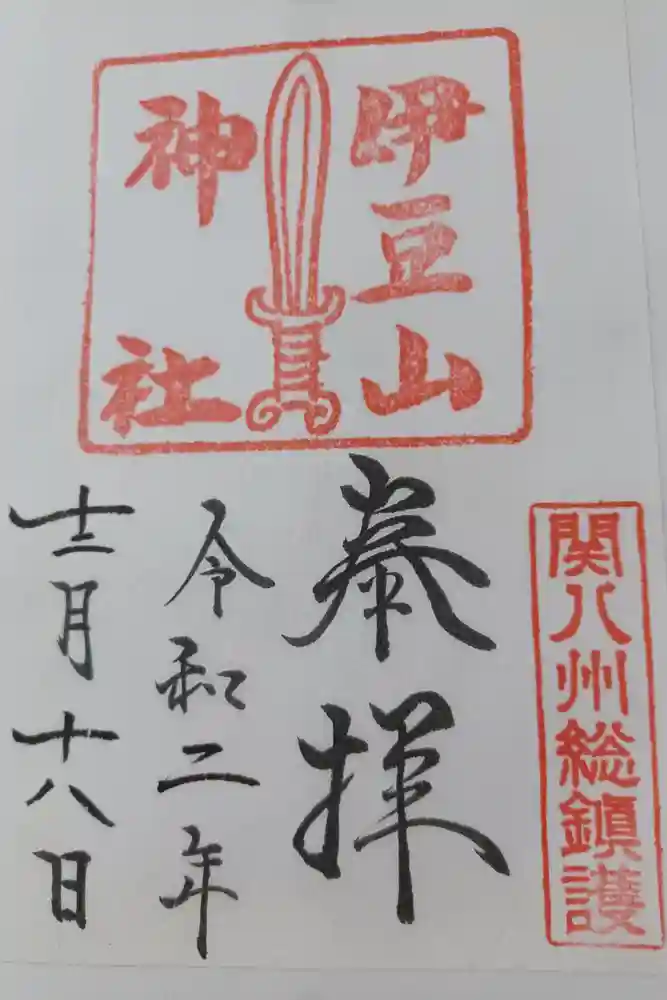 伊豆山
神社
関八州総鎮護
奉拝
令和二年
十二月十八日